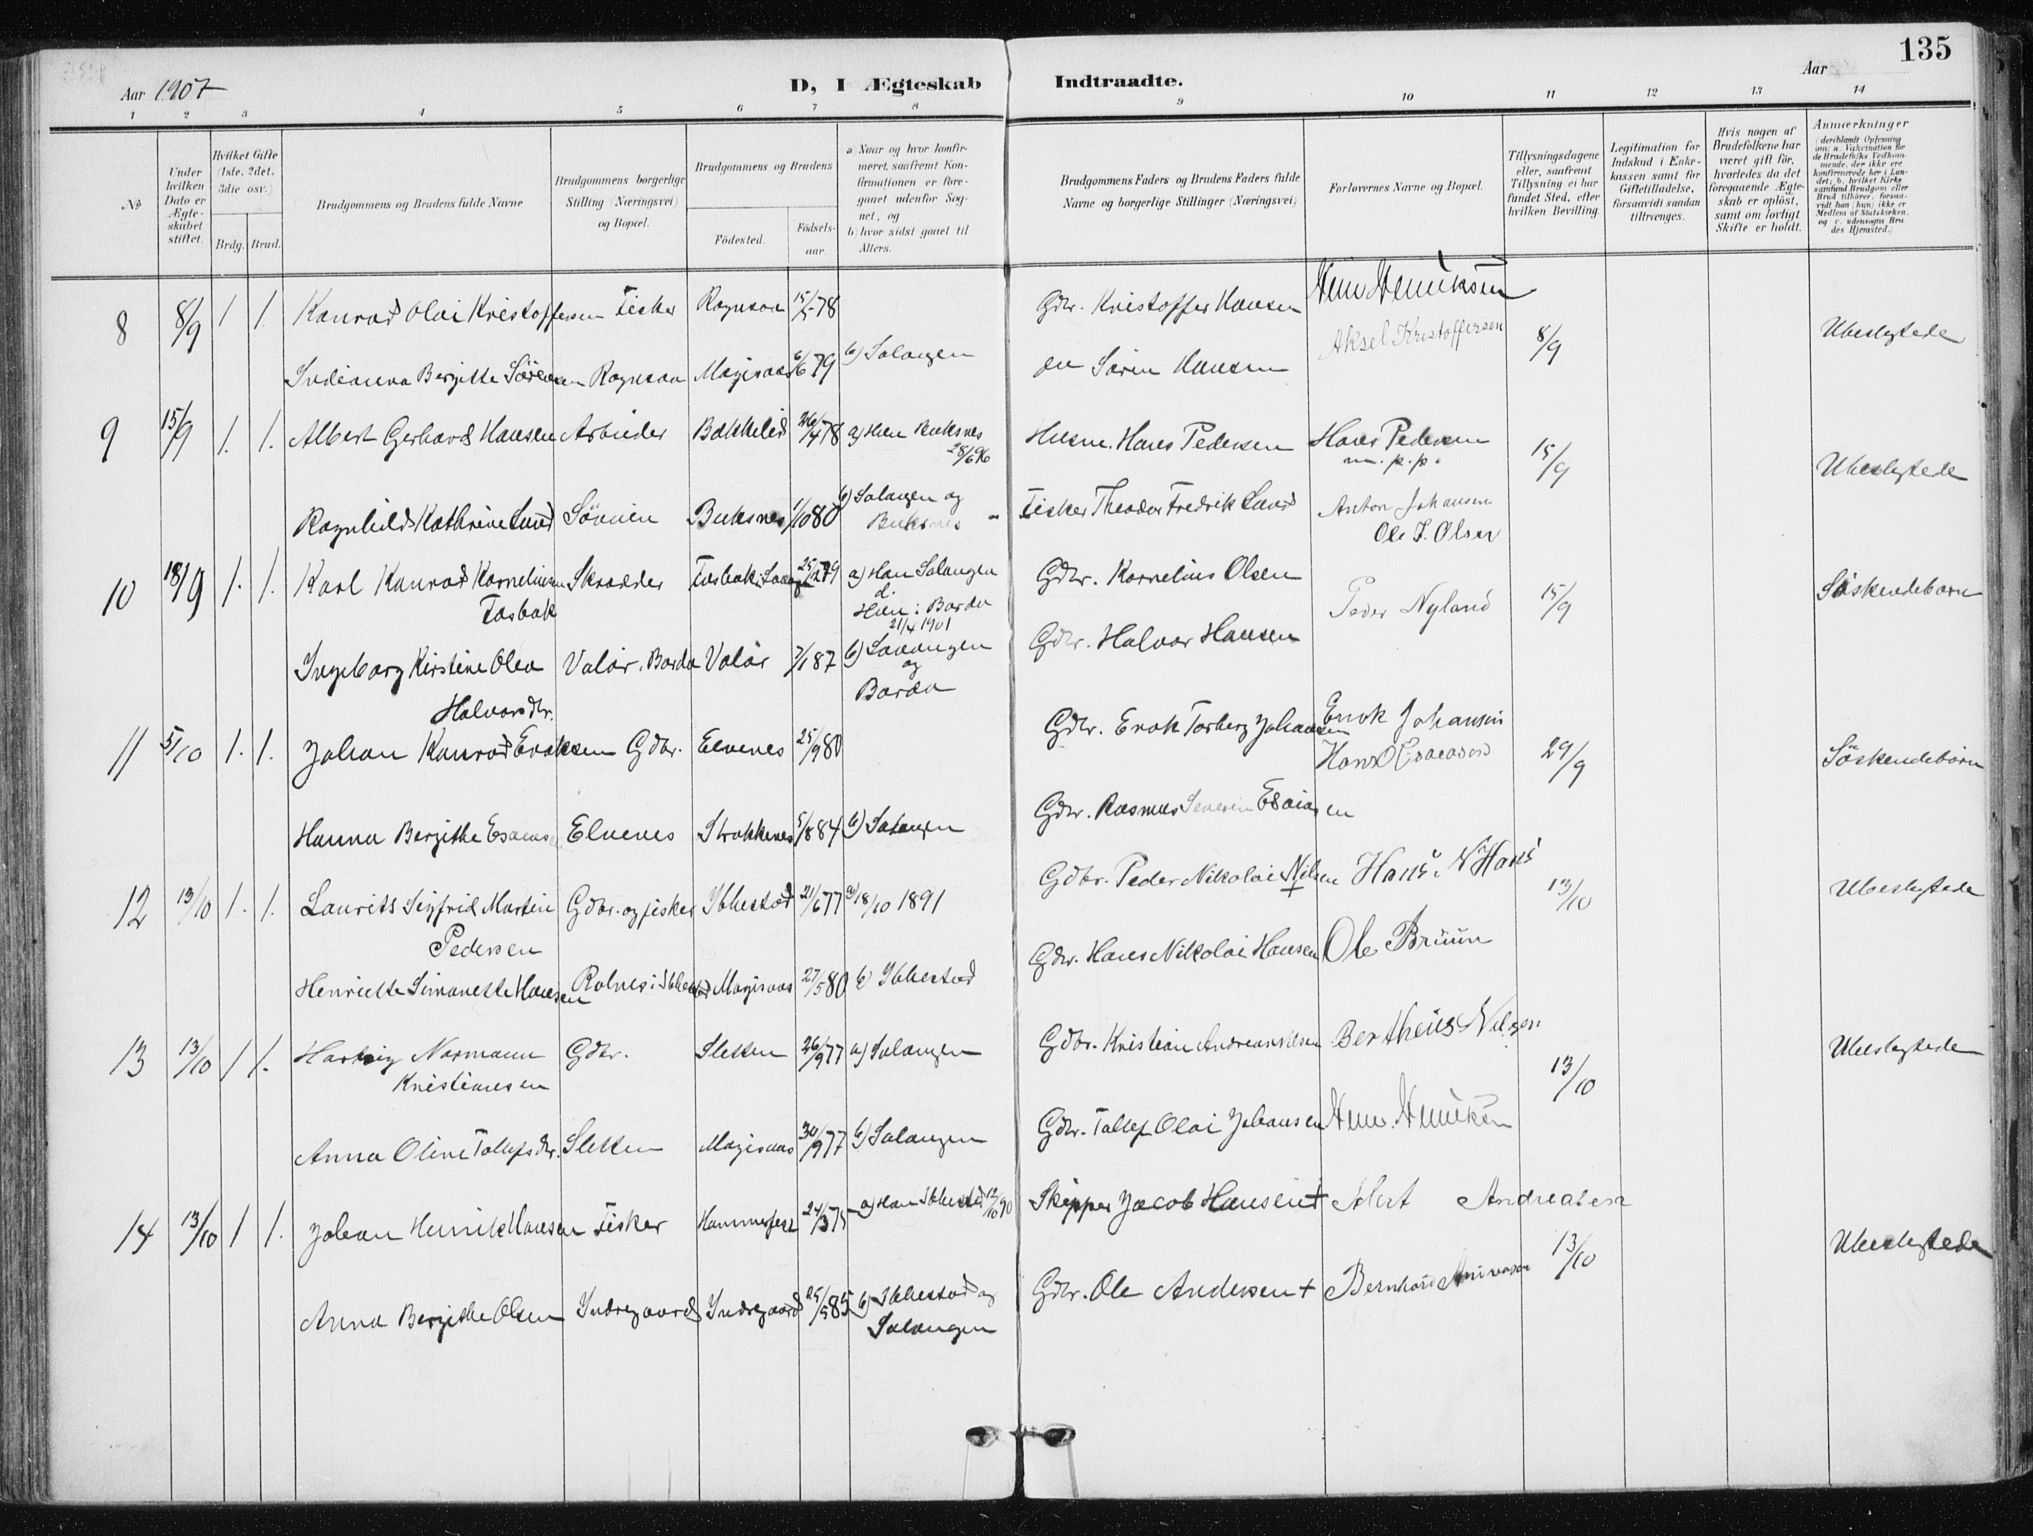 135
Aar 1907
D, I Ægteskab Indtraadte.
Aar
1 2 3 4 5 6 7 8 9 10 11 12 13 14
№
Under hvilken Dato er Ægteskabet stiftet.
Hvilket Gifte (1ste, 2det, 3die osv.)
Brdg. Brud.
Brudgommens og Brudens fulde Navne
Brudgommens borgerlige Stilling (Næringsvei) og Bopæl.
Brudgommens og Brudens
Fødested.
Fødsels-aar.
a) Naar og hvor konfirmeret, saafremt Konfirmationen er foregaaet udenfor Sognet, og
b) hvor sidst gaaet til Alters.
Brudgommens Faders og Brudens Faders fulde Navne og borgerlige Stillinger (Næringsvei)
Forlovernes Navne og Bopæl.
Tillysningsdagene eller, saafremt Tillysning ei har fundet Sted, efter hvilken Bevilling.
Legitimation for Indskud i Enkekassen samt for Giftetilladelse, forsaavidt saadan tiltrænges.
Hvis nogen af Brudefolkene har været gift før, hvorledes da det foregaaende Ægteskab er opløst, samt om lovligt Skifte er holdt.
Anmærkninger (deriblandt Oplysning om: a. Vakcination for de Brudefolks Vedkommende, der ikke ere konfirmerede her i Landet; b. hvilket Kirkesamfund Brudgom eller Brud tilhører, forsaavidt han (hun) ikke er Medlem af Statskirken, og c. udensogns Brudes Hjemsted.)
8 8/9 1 1. Konrad Olai Kristoffersen Fisker Rognsaa 15/5 78 Gdbr. Kristoffer Hansen Henr Henriksen
Aksel Kristoffersen 8/9 Ubeslegtede
Indianna Bergitte Sørensen Rognsaa Møgisaas 6/6 79 b) Salangen Søren Hansen
9 15/9 1. 1. Albert Gerhard Hansen Arbeider Bakkelid 26/4 78 a) Han Buksnes 28/6 96 Husm. Hans Pedersen Hans Pedersen
m. p. p. 15/9 Ubeslegtede
Ragnhild Kathrine Lund Søveien Buksnes 1/10 80 b) Salangen og Buksnes Fisker Theodor Fredrik Lund Anton Johansen
Ole J. Olsen
10 18/9 1. 1. Karl Konrad Kornelius Fosbak Skrædder Fosbak i Lavangen 25/12 79 a) Han Salangen d.
Hun i Bardo 21/4 1901 Gdbr. Kornelius Olsen Peder Nyland 15/9 Søskendebørn
Ingeborg Kirstine Olea Halvorsdtr. Valør. Bardo Valør 7/1 87 b) Lavangen og Bardo Gdbr. Halvor Hansen
11 5/10 1. 1. Johan Konrad Enoksen Gdbr. Elvenes 25/9 80 Gdbr. Enok Torberg Johansen Enok Johansen
Hans Esaiasen 29/9 Søskendebørn
Hanna Bergithe Esaiasen Elvenes Strokkenes 5/8 84 b) Salangen Gdbr. Rasmus Severin Esaiasen
12 13/10 1. 1. Laurits Sigfrid Martin Pedersen Gdbr. og fisker Ibbestad 21/6 77 a) 18/10 1891 Gdbr. Peder Nikolai Nilsen + Hans N Hans 13/10 Ubeslegtede
Henriette Simonette Hansen Rolnes i Ibbestad Møgisaas 27/5 80 b) Ibbestad Gdbr. Hans Nikolai Hansen Ole Bruun
13 13/10 1 1. Hartvig Normann Kristiansen Gdbr. Sletten 26/9 77 a) Salangen Gdbr. Kristian Andreas Nilsen Bertheus Nilsen 13/10 Ubeslegtede
Anna Oline Tollefsdtr. Sletten Møgisaas 30/9 77 b) Salangen Gdbr. Tollef Olai Johansen Henr. Henriksen
14 13/10 1 1. Johan Henrik Hansen Fisker Hammerfest 24/3 75 a) Han Ibbestad 12/10 90 Skipper Jacob Hansen + Andreasen 13/10 Ubeslegtede
Anna Bergithe Olsen Indregaard Indregaard 25/5 85 b) Ibbestad og Salangen Gdbr. Ole Andersen + Bernhard